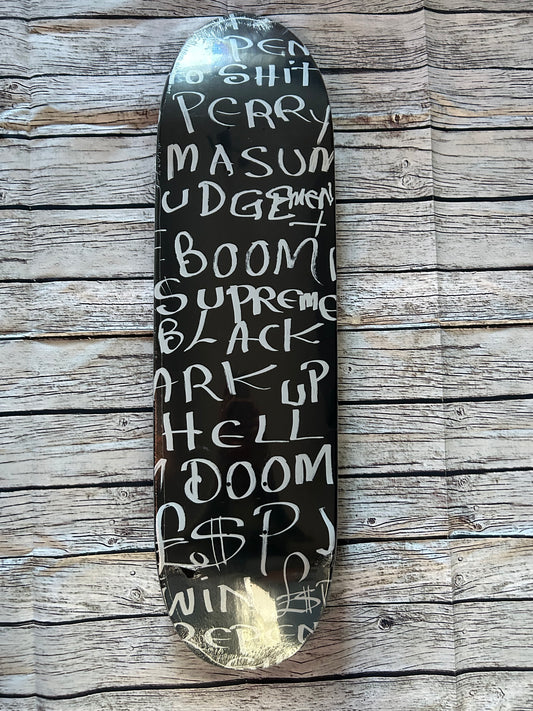 PEN
O SHIT
PERRY
MASUM
UDGEMENT
BOOM
SUPREME
BLACK
ARK UP
HELL
DOOM
£$P J
WIN £$P
REPEN